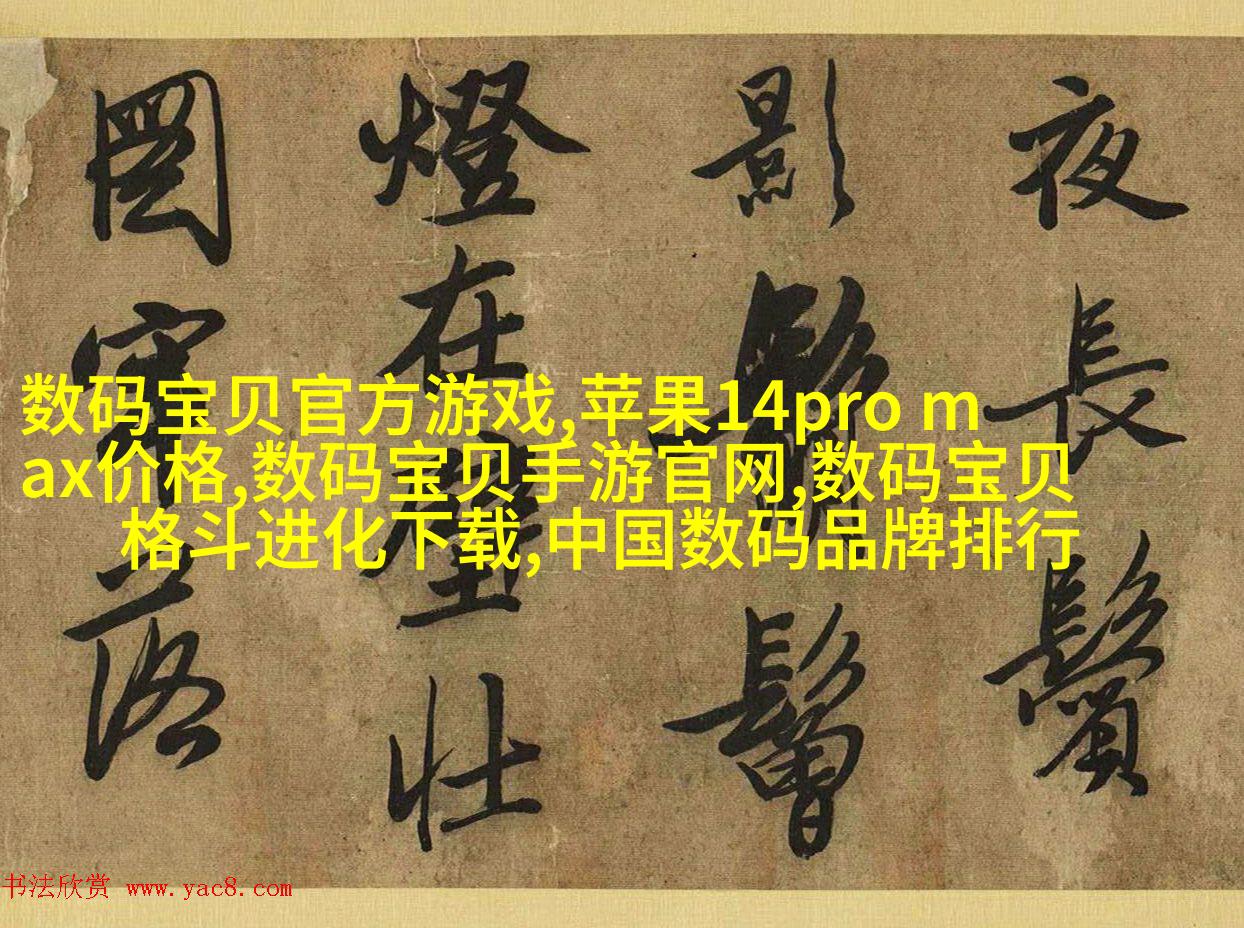 夜長鬢
影鬅鬙
燈在壁壯
圖寥落
数码宝贝官方游戏,苹果14pro m
ax价格,数码宝贝手游官网,数码宝贝
格斗进化下载,中国数码品牌排行
书法欣赏 www.yac8.com